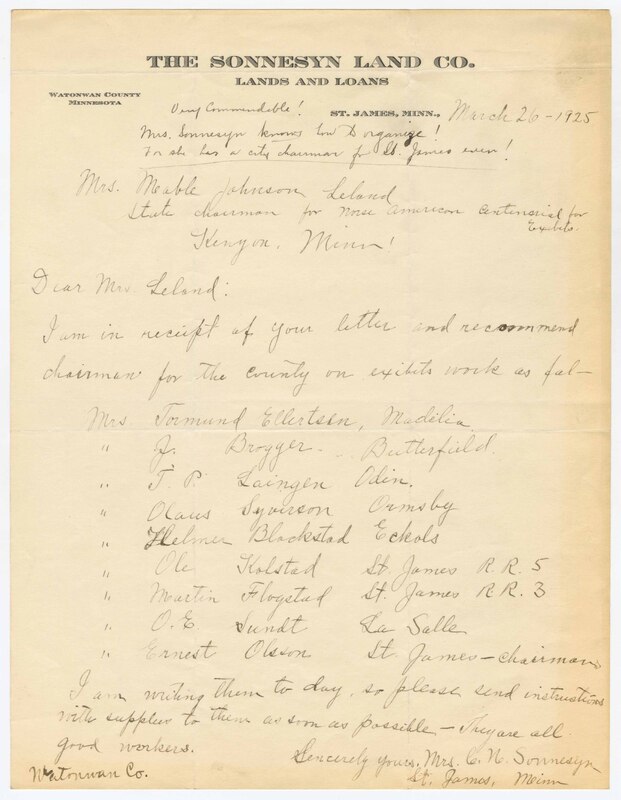 THE SONNESYN LAND CO.
LANDS AND LOANS
WATONWAN COUNTY
MINNESOTA
ST. JAMES, MINN., March 26 - 1925
Very Commendable!
Mrs. Sonnesyn knows how to organize!
For she has a city chairman for St. James even!
Mrs. Mable Johnson Leland
State chairman for Norse American Centennial for
Exibits.
Kenyon, Minn!
Dear Mrs. Leland:
I am in receipt of your letter and recommend
chairman for the county on exibits work as fol-
Mrs. Tormund Ellertsen, Madelia.
" J. Brogger - Butterfield.
" T. P. Laingen Odin.
" Olaus Syverson Ormsby
" Helmer Blackstad Echols
" Ole Kolstad St. James R.R. 5
" Martin Flogstad St. James R.R. 3
" O.E Sundt La Salle
" Ernest Olsson St. James - chairman
I am writing them to day, so please send instructions
with supplies to them as soon as possible - They are all
good workers.
Sincerely yours, Mrs. C. N. Sonnesyn
St. James, Minn
Watonwan Co.